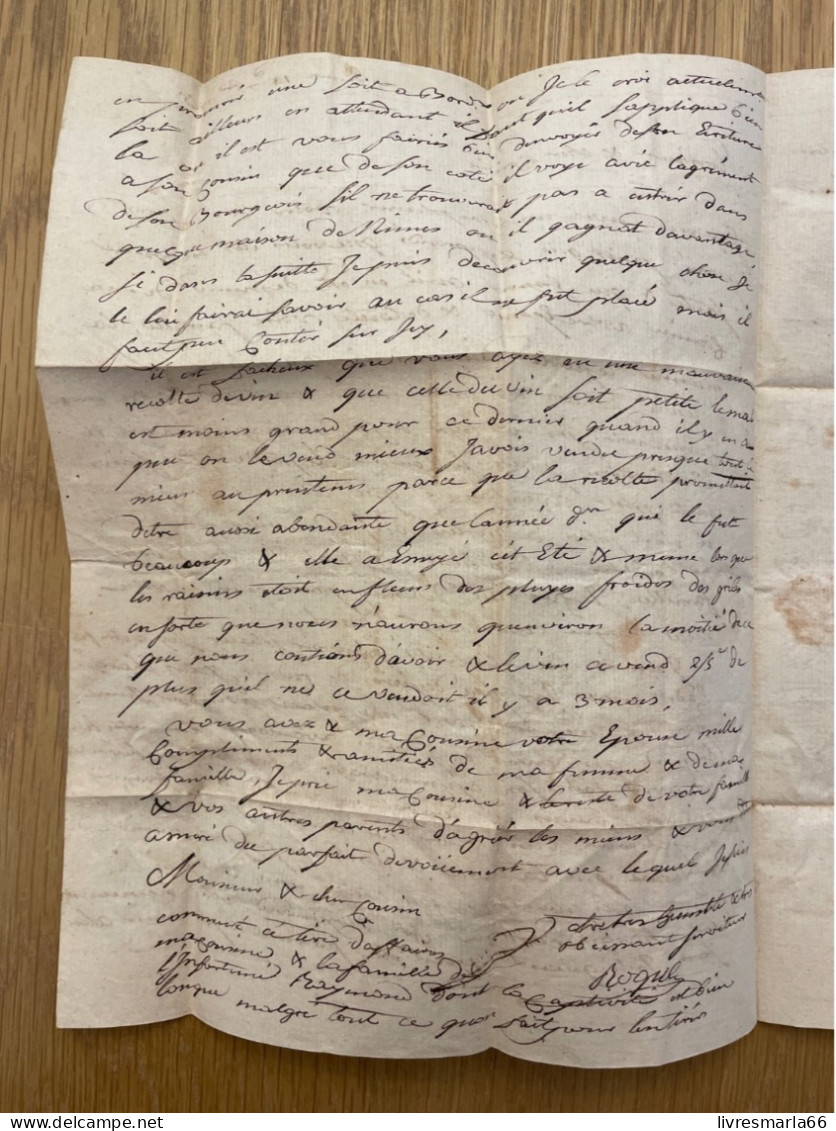 en trouvés une soit a Bord ou Je le croi actuellem
soit ailleurs en attendant il faut quil sapplique bien
la ou il est vous fairiés bien denvoyér de son Ecriture
a son Cousin que de son coté il voye avec lagrément
de son Bourgeois sil ne trouverait pas a entrér dans
quelque maison de Nimes ou il gagnat davantage
si dans la suitte Je puis decouvrir quelque chose Je
le lui fairai savoir au cas il ne fut placé mais il
faut peu Contér sur Jcy,
il est facheux que vous ayez eu une mauvaise
recolte de vin & que celle du vin soit petite le mal
est moins grand pour ce dernier quand il y en a
peu on le vend mieux Javois vendu presque tout le
mien au printems parce que la recolte promettoit
detre aussi abondante que lannée dre qui le fut
beaucoup & elle a Envoyé cét Eté & meme lorsque
les raisins etoit en fleurs des pluyes froides des gréles
en sorte que nous n'aurons quenviron la moitié de ce
que nous contions davoir & le vin ce vend 2/3 de
plus quil ne ce vendoit il y a 3 mois,
vous avez & ma Cousine votre Epouse mille
Compliments & amitiés de ma femme & de ma
famille, Je prie ma Cousine & le reste de votre famille
& vos autres parents d'agréér les miens & vous
assuré du parfait devoüement avec le quel Je suis
Monsieur & cher Cousin
votre tres humble & tres
obeissant serviteur
Roquel
comment ce tire daffaires
ma Cousine & la famille de
l'Infortuné Raymond dont la Captivité est bien
longue malgre tout ce quon fait pour len tirér
livresmarla66